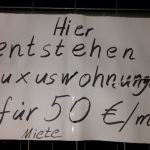 Hier
entstehen
uxuswohnung
für 50 €/m
Miete